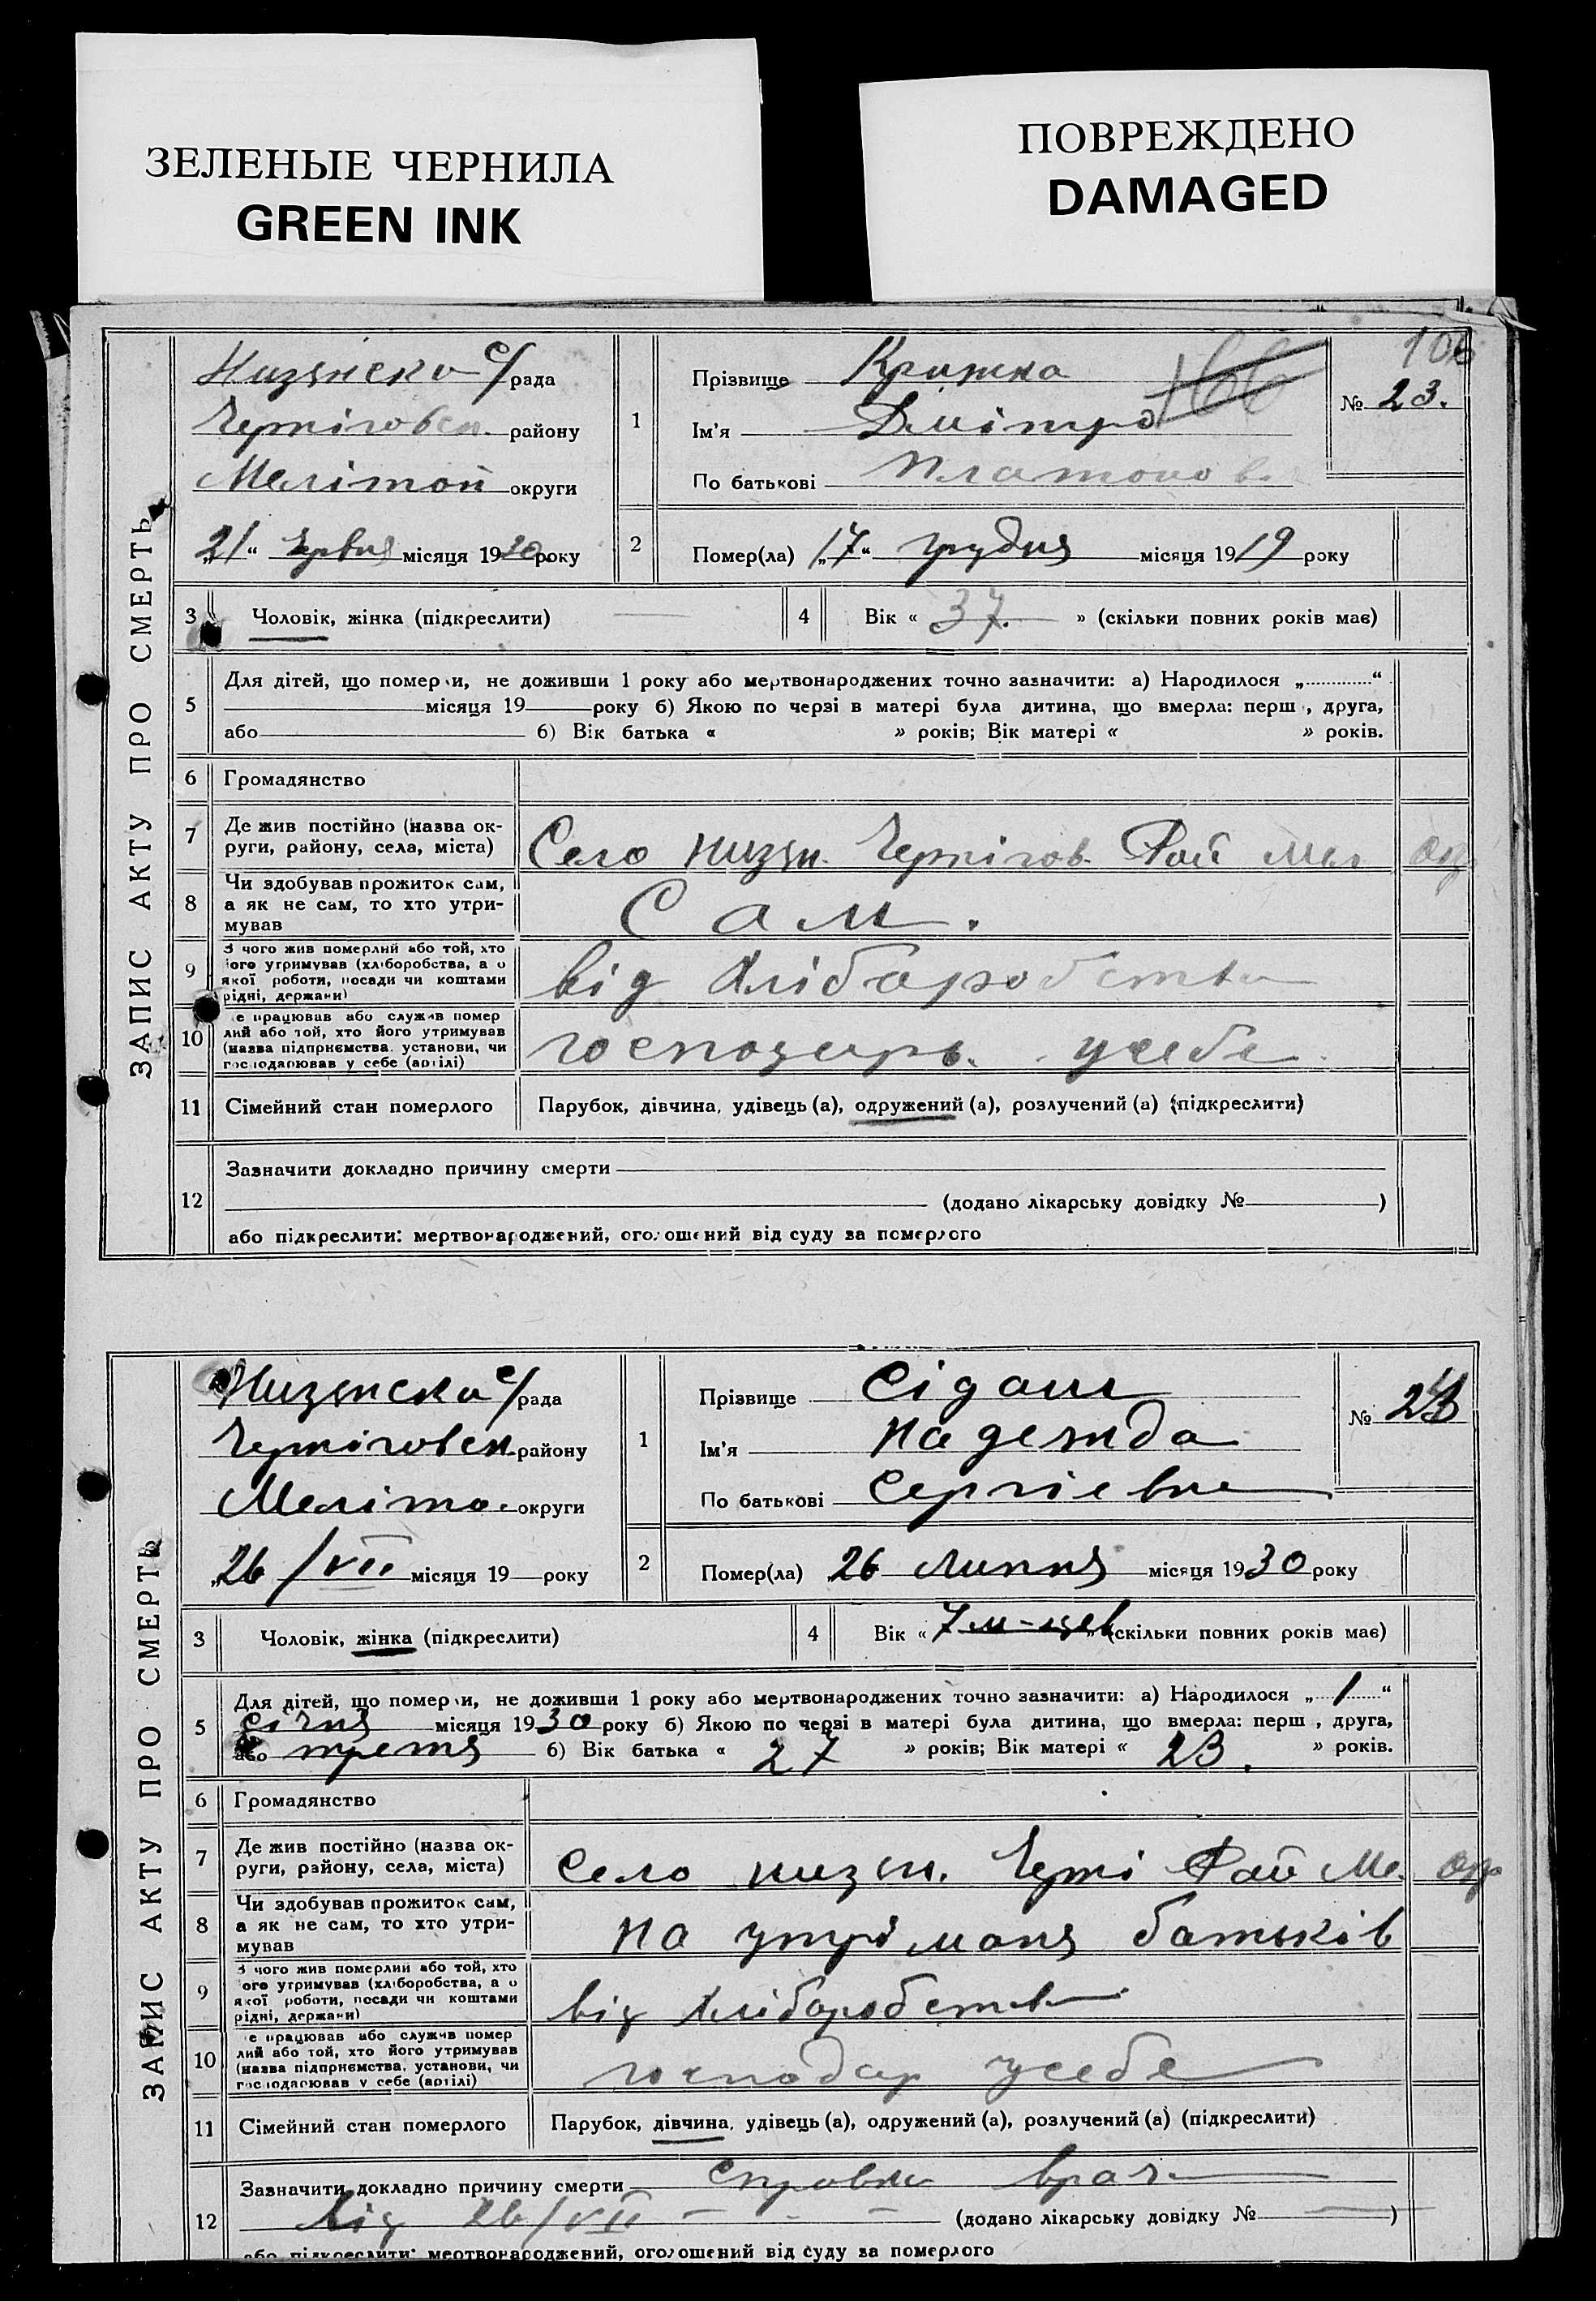 ЗЕЛЕНЫЕ ЧЕРНИЛА
GREEN INK
ПОВРЕЖДЕНО
DAMAGED
106
ЗАПИС АКТУ ПРО СМЕРТЬ
Низянска с/рада
Черніговск. району
Меліто округи
„21“ Червня місяця 1930 року
1
Прізвище Крижка
166
Ім'я Дмітро
По батькові Платонов
№ 23.
2
Помер(ла) „17“ грудня місяця 1919 року
3 Чоловік, жінка (підкреслити)
4 Вік « 37. » (скільки повних років має)
5
Для дітей, що померли, не доживши 1 року або мертвонароджених точно зазначити: а) Народилося „ “
місяця 19 року б) Якою по черзі в матері була дитина, що вмерла: перш , друга,
або б) Вік батька « » років; Вік матері « » років.
6 Громадянство
7 Де жив постійно (назва ок-
руги, району, села, міста)
Село Низян. Чернігов. Рай Мел окр
8 Чи здобував прожиток сам,
а як не сам, то хто утри-
мував
Сам.
9 З чого жив померлий або той, хто
його утримував (хліборобства, а о
якої роботи, посади чи коштами
рідні, держави)
від хліборобства
10 е працював або служив помер
лий або той, хто його утримував
(назва підприємства, установи, чи
господарював у себе (артілі)
господарь. усебе
11 Сімейний стан померлого Парубок, дівчина, удівець (а), одружений (а), розлучений (а) (підкреслити)
12 Зазначити докладно причину смерти
(додано лікарську довідку № )
або підкреслити: мертвонароджений, оголошений від суду за померлого
ЗАПИС АКТУ ПРО СМЕРТЬ
Низянска с/рада
Черніговск. району
Меліто. округи
„26 /VII місяця 19 року
1
Прізвище Сідаш
Ім'я Надежда
По батькові Сергіевна
№ 24
2
Помер(ла) 26 Липня місяця 1930 року
3 Чоловік, жінка (підкреслити)
4 Вік « 7 м-цев » (скільки повних років має)
5
Для дітей, що померли, не доживши 1 року або мертвонароджених точно зазначити: а) Народилося „ 1 “
січня місяця 1930 року б) Якою по черзі в матері була дитина, що вмерла: перш , друга,
або третя б) Вік батька « 27 » років; Вік матері « 23. » років.
6 Громадянство
7 Де жив постійно (назва ок-
руги, району, села, міста)
Село низян. Черні Рай Ме. окр
8 Чи здобував прожиток сам,
а як не сам, то хто утри-
мував
на утріманя батьків
9 З чого жив померлий або той, хто
ого утримував (хліборобства, а о
якої роботи, посади чи коштами
рідні, держави)
від хліборобства
10 е працював або служив помер
лий або той, хто його утримував
(назва підприємства, установи, чи
господарював у себе (артілі)
господар усебе
11 Сімейний стан померлого Парубок, дівчина, удівець (а), одружений (а), розлучений (а) (підкреслити)
12 Зазначити докладно причину смерти справка врач
від 26/VII (додано лікарську довідку № )
або підкреслити: мертвонароджений, оголошений від суду за померлого